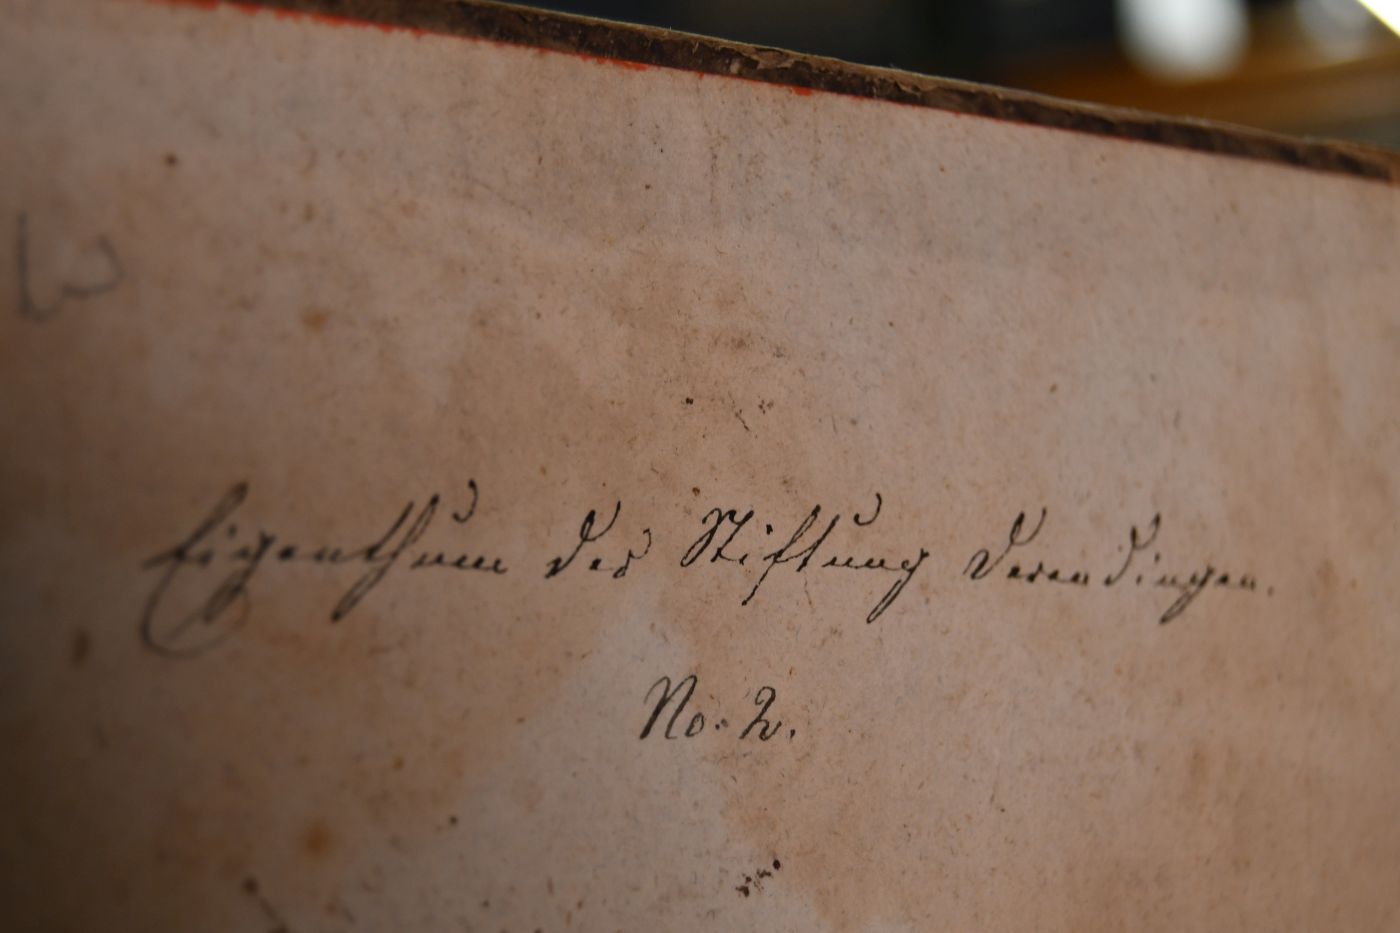 Eigenthum der Stiftung Derendingen.
No. 2.